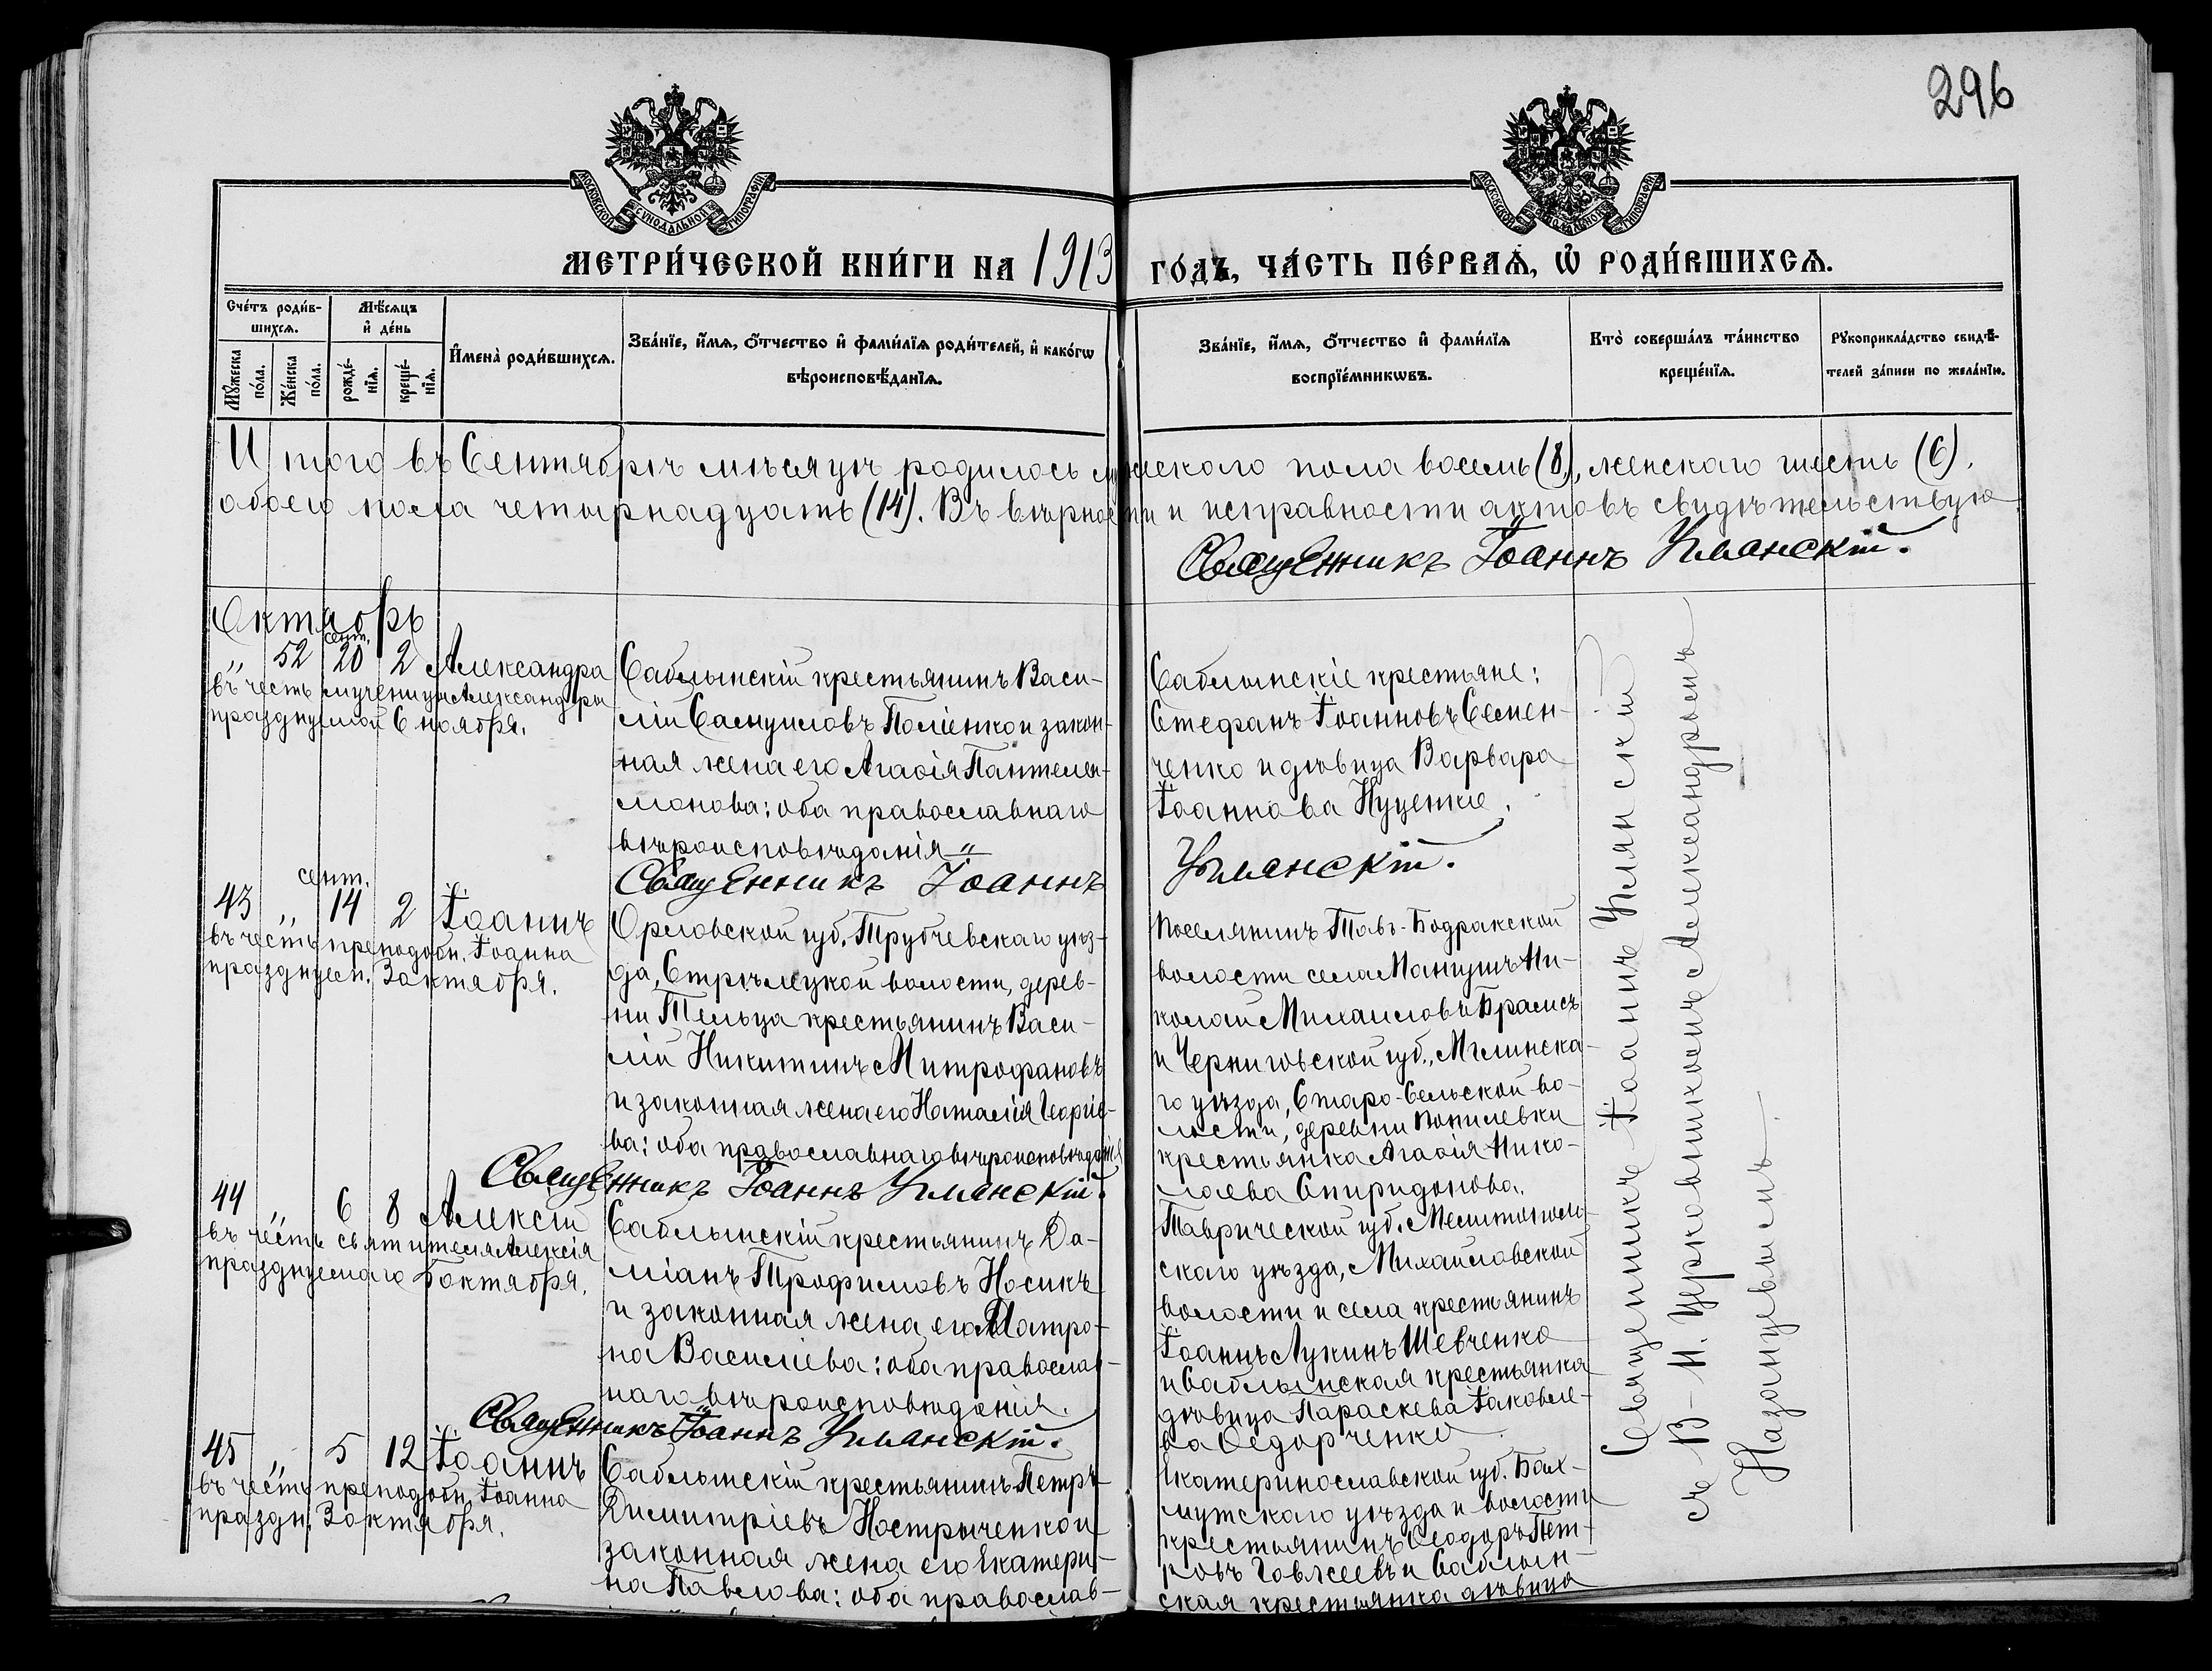 296
МОСКОВСКОЙ СѴНОДАЛЬНОЙ ТИПОГРАФІИ
МОСКОВСКОЙ СѴНОДАЛЬНОЙ ТИПОГРАФІИ
МЕТРИ́ЧЕСКОЙ КНИ́ГИ НА 1913 ГО́ДЪ, ЧА́СТЬ ПЕ́РВАѦ, Ѡ РОДИ́ВШИХСѦ.
Сче́тъ роди́в-
шихсѧ.
Мꙋжеска по́ла.
Же́нска по́ла.
Мѣ́сѧцъ
и҆ де́нь
рожде́-
нїѧ.
креще́-
нїѧ.
И҆мена̀ роди́вшихсѧ.
Зва́нїе, и҆́мѧ, ѻ҆́тчество и҆ фами́лїѧ роди́телей, и҆ како́гѡ
вѣроисповѣ́данїѧ.
Зва́нїе, и҆́мѧ, ѻ҆́тчество и҆ фами́лїѧ
воспрїе́мникѡвъ.
Кто̀ соверша́лъ та́инство
креще́нїѧ.
Рꙋкоприкла́дство свидѣ́-
телей за́писи по жела́нїю.
Итого въ Сентябрѣ мѣсяцѣ родилось мужескаго пола восемь (8), женскаго шесть (6),
обоего пола четырнадцать (14). Въ вѣрности и исправности актовъ свидѣтельствую
Священникъ Іоаннъ Уманскій.
Октябрь
сент.
„ 52 20 2 Александра
въ честь мученицы Александры
празднуемой 6 ноября.
Саблынскій крестьянинъ Васи-
лій Самуиловъ и закон-
ная жена его Агаѳія Пантелеи-
монова: оба православнаго
вѣроисповѣданія„
Саблынскіе крестьяне:
Стефанъ Іоанновъ Семен-
ченко и дѣвица Варвара
Іоаннова
Священникъ Іоаннъ Уманскій.
сент.
43 „ 14 2 Іоаннъ
въ честь преподобн. Іоанна
празднуем. 3 октября.
Орловской губ. Трубчевскаго уѣз-
да, Стрѣлецкой волости, дерев-
ни Тельца крестьянинъ Васи-
лій Никитинъ Митрофановъ
и законная жена его Наталія Георгіе-
ва: оба православнаго вѣроисповѣданія
Поселянинъ Тав.-Бодракской
волости села Мангушъ Ни-
колай Михаиловъ
и Черниговской губ., Мглинска-
го уѣзда, Старо-Сельской во-
лости, деревни
крестьянка Агаѳія Нико-
лаева Спиридонова.
Священникъ Іоаннъ Уманскій.
44 „ 6 8 Алексій
въ честь святителя Алексія
празднуемаго 5 октября.
Саблынскій крестьянинъ Да-
міанъ Трофимовъ Носикъ
и законная жена его Матро-
на Василіева: оба православ-
наго вѣроисповѣданія.
Таврической губ. Мелитополь-
скаго уѣзда, Михайловской
волости и села крестьянинъ
Іоаннъ Лукинъ Шевченко
и Саблынская крестьянка
дѣвица Параскева Іаковле-
ва Ѳедорченко
Священникъ Іоаннъ Уманскій.
45 „ 5 12 Іоаннъ
въ честь преподобн. Іоанна
праздн. 3 октября.
Саблынскій крестьянинъ Петръ
Димитріевъ и
законная жена его Екатери-
на Павлова: оба православ-
Екатеринославской губ. Бах-
мутскаго уѣзда и волости
крестьянинъ Ѳеодоръ Пет-
ровъ и Саблын-
ская крестьянка дѣвица
Священникъ Іоаннъ Уманскій
съ В-И. Церковникомъ Александромъ
Казанцевымъ.